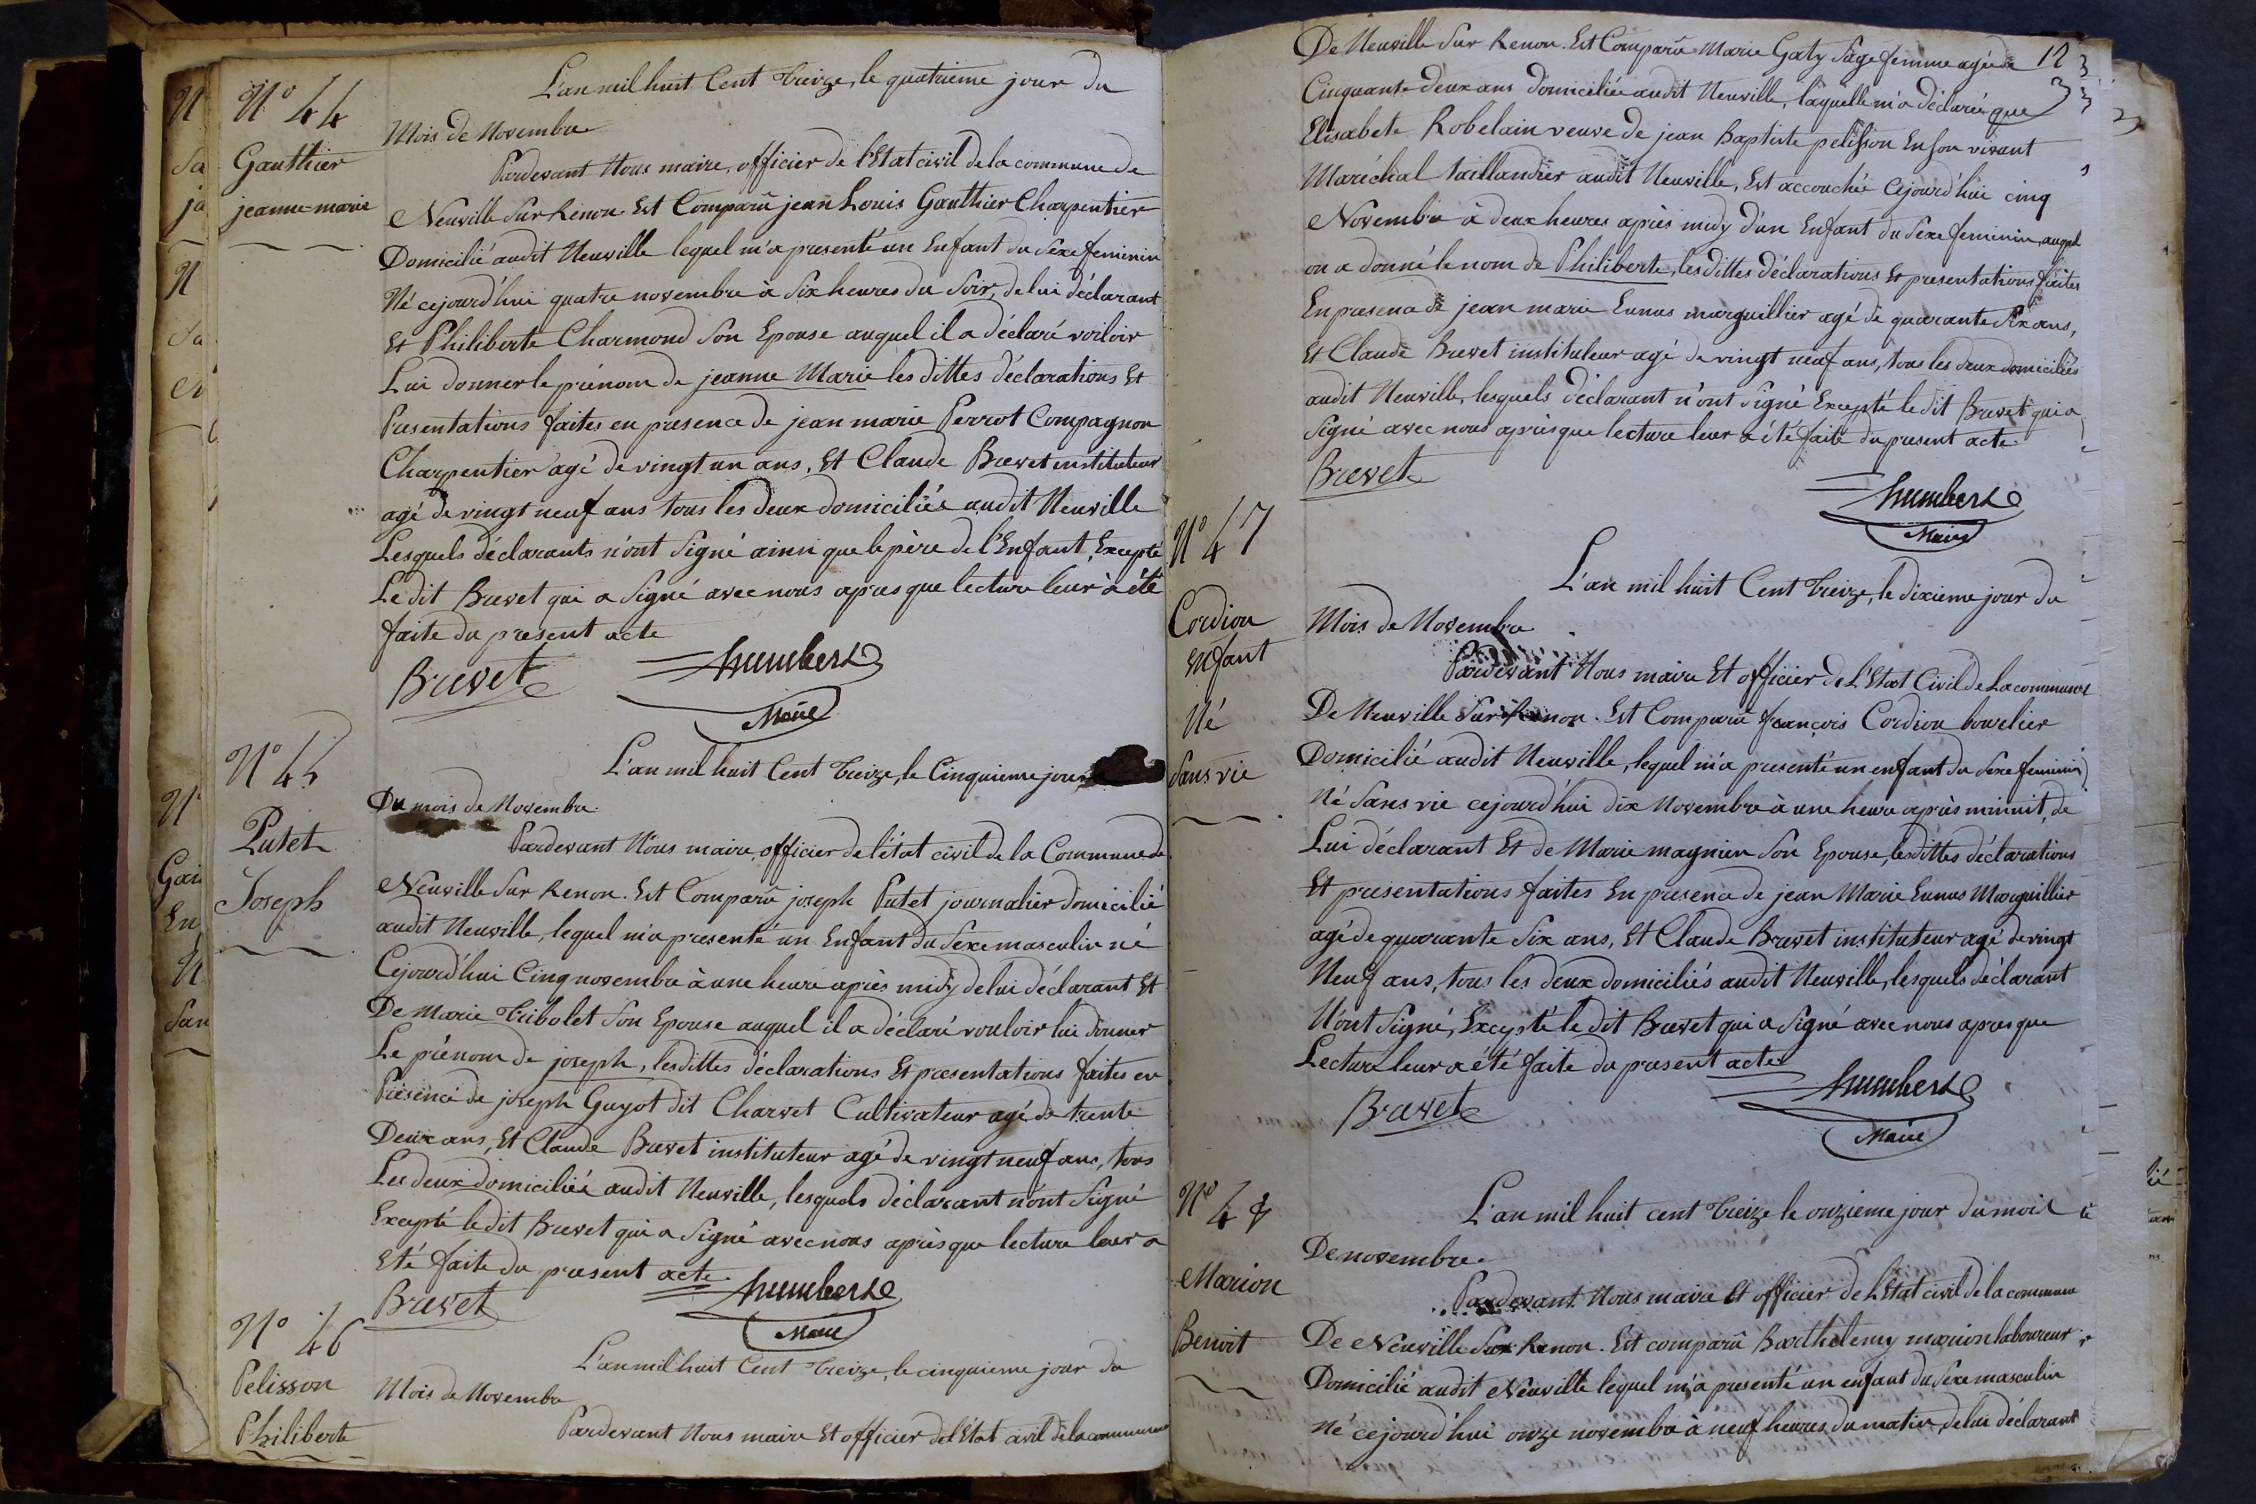 N° 44
Gauthier
jeanne-marie
L'an mil huit Cent treize, le quatrieme jour du
Mois de Novembre
Pardevant Nous maire, officier de l'Etat civil de la commune de
Neuville Sur Renon. Est Comparû jean Louis Gauthier Charpentier
Domicilié audit Neuville lequel m'a presenté un Enfant du Sexe feminin
Né cejourd'hui quatre novembre à Six heures du Soir, de lui déclarant
Et Philiberte Charmond Son Epouse auquel il a déclaré voiloir
Lui donner le prénom de jeanne Marie les dittes déclarations Et
Presentations faites en presence de jean marie Perrot Compagnon
Charpentier agé de vingt un ans, Et Claude Brevet instituteur
agé de vingt neuf ans tous les deux domiciliés audit Neuville
Lesquels déclarants n'ont Signé ainsi que le père de l'Enfant, Excepté
Le dit Brevet qui a Signé avec nous apres que lecture leur à été
faite du present acte
Brevet humbert
Maire
N° 45
Putet
Joseph
L'an mil huit Cent treize, le Cinquieme jour
Du mois de Novembre.
Pardevant Nous maire, officier de l'état civil de la Commune de
Neuville Sur Renon. Est Comparû joseph Putet journalier domicilié
audit Neuville, lequel m'a presenté un Enfant du Sexe masculin né
Cejourd'hui Cinq novembre à une heure après midy de lui déclarant Et
De Marie Tribolet Son Epouse auquel il a déclaré vouloir lui donner
Le prénom de joseph, les dittes déclarations Et presentations faites en
Présence de joseph Guyot dit Charvet Cultivateur agé de trente
Deux ans, Et Claude Brevet instituteur agé de vingt neuf ans, tous
Les deux domiciliés audit Neuville, lesquels déclarant n'ont Signé
Excepté le dit Brevet qui a Signé avec nous après que lecture leur a
Eté faite du present acte.
Brevet humbert
Maire
N° 46
Pelisson
Philiberte
L'an mil huit Cent treize, le cinquieme jour du
Mois de Novembre
Pardevant Nous maire Et officier de l'Etat civil de la commune
De Neuville Sur Renon. Est Comparû Marie Gaty Sage femme agée de 12
Cinquante deux ans domiciliée audit Neuville, laquelle m'a déclarée que
Elisabete Robelain veuve de jean Baptiste pelisson En Son vivant
Maréchal taillandier audit Neuville, Est accouchée Cejourd'hui cinq
Novembre à deux heures après midy d'un Enfant du Sexe feminin, auquel
on a donné le nom de Philiberte, les dittes déclarations Et presentations faites
En presence de jean marie Eunus marguillier agé de quarante Six ans,
Et Claude Brevet instituteur agé de vingt neuf ans, tous les deux domiciliés
audit Neuville, lesquels déclarant n'ont Signé Excepté le dit Brevet qui a
Signé avec nous après que lecture leur a été faite du present acte
Brevet
humbert
Maire
N° 47
Cordion
Enfant
Né
Sans vie
L'an mil huit Cent treize, le dixieme jour du
Mois de Novembre
Pardevant Nous maire Et officier de L'Etat Civil de La commune
De Neuville Sur Renon. Est Comparû françois Cordion bourelier
Domicilié audit Neuville, lequel m'a presenté un enfant du Sexe feminin
Né Sans vie cejourd'hui dix Novembre à une heure après minuit, de
Lui déclarant Et de Marie magnien Son Epouse, les dittes déclarations
Et presentations faites En presence de jean Marie Eunus Marguillier
agé de quarante Six ans, Et Claude Brevet instituteur agé de vingt
Neuf ans, tous les deux domiciliés audit Neuville, lesquels déclarant
N'ont Signé, Excepté le dit Brevet qui a Signé avec nous apres que
Lecture leur a été faite du present acte
Brevet humbert
Maire
N° 48
Marion
Benoit
L'an mil huit cent treize le onzieme jour du mois
De novembre.
Pardevant Nous maire Et officier de l'Etat civil de la commune
De Neuville Sur Renon. Est comparû Barthelemy marion laboureur
Domicilié audit Neuville lequel m'a presenté un enfant du Sexe masculin
Né cejourd'hui onze novembre à neuf heures du matin, de lui déclarant